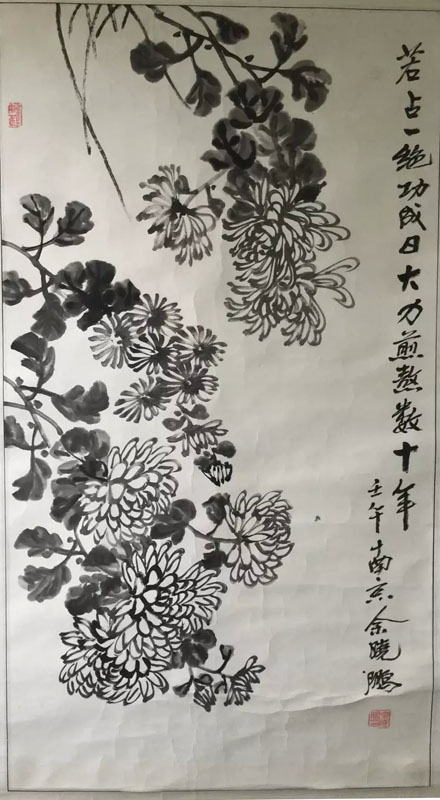 若占一绝功成日大力煎熬数十年
壬午南京余晓鹏